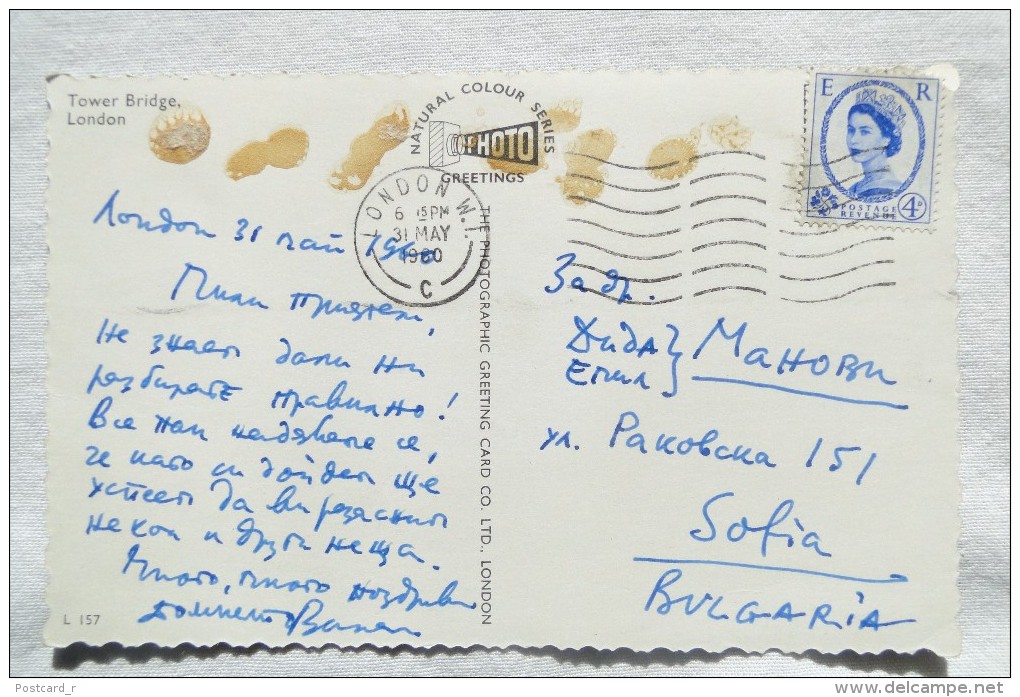 Tower Bridge,
London
NATURAL COLOUR SERIES
PHOTO
GREETINGS
LONDON W.1.
6 15PM
31 MAY
1960
C
E R
POSTAGE
REVENUE
4D
London 31 май 1960
Мили приятели,
Не знаем дали ни
разбирате правилно!
Все пак надяваме се,
че като си дойдем ще
успеем да ви разясним
некои и други неща.
Много, много поздрави
THE PHOTOGRAPHIC GREETING CARD CO. LTD., LONDON
За др.
Дида
Емил
Манови
ул. Раковска 151
Sofia
BULGARIA
L 157
Postcard_r
www.delcampe.net